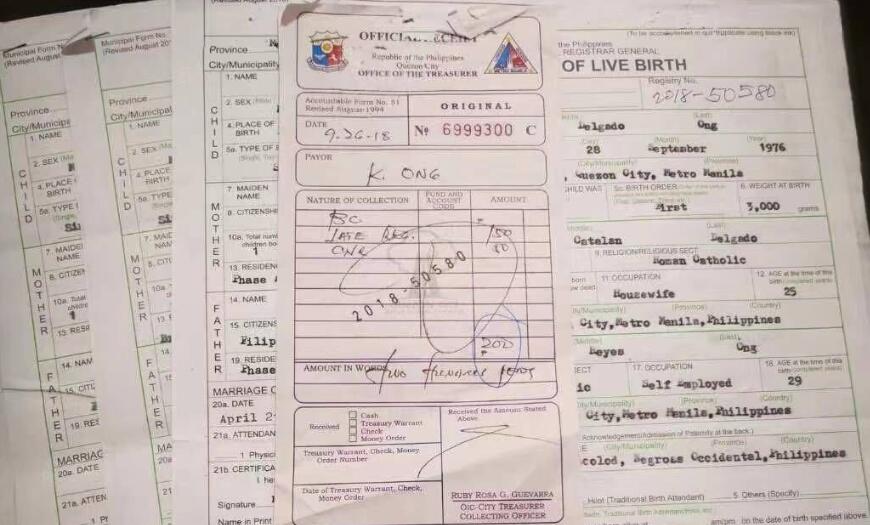 Municipal Form N
(Revised August 20
Province
City/Municipa
1. NAME
2. SEX
4. PLACE
BIRTH
5a. TYPE
CHILD
7. MAIDE
NAME
8. CITIZEN
10a. Total
children
1
13. RESI
MOTHER
14. NAM
15. CITI
19. RES
FATHER
MARRIAG
20a. DATE
21a. ATTEN
1 Ph
(Revised August 201
Province
City/Municip
1. NAME
2. SEX
4. PLACE
BIRTH
5a. TYPE
CHILD
7. MAID
NAME
8. CITI
10a. Tot
1
13.
MOTHER
14.
15.
19.
FATHER
MARRIA
20a. DA
21a. AT
1
21b. CER
Sign
Nam
(Revised August
Province
City/Municipality
1. NAME
2. SEX
4. PLACE OF
BIRTH
5a. TYPE OF B
CHILD
7. MAIDEN
NAME
8. CITIZENSH
10a. Total num
children bo
1
13. RESIDEN
Phase
MOTHER
14. NAME
15. CITIZENS
Filip
19. RESIDE
Phase
FATHER
MARRIAGE O
20a. DATE
April 2
21a. ATTENDAN
1 Physici
21b. CERTIFICA
I he
Signature
Name in Print
OFFICIAL RECEIPT
Republic of the Philippines
Quezon City
OFFICE OF THE TREASURER
METRO MANILA
Accountable Form No. 51
Revised August 1994
ORIGINAL
DATE
9-26-18
No 6999300 C
PAYOR
K. ONG
NATURE OF COLLECTION
FUND AND ACCOUNT CODE
AMOUNT
BC
LATE REG.
150
2018-50580
200
AMOUNT IN WORDS
Two Hundred Pesos
Received
Cash
Treasury Warrant
Check
Money Order
Received the Amount Stated Above
Treasury Warrant, Check, Money
Order Number
Date of Treasury Warrant, Check,
Money Order
RUBY ROSA G. GUEVARRA
OIC-CITY TREASURER
COLLECTING OFFICER
(To be accomplished in quadruplicate using black ink)
the Philippines
REGISTRAR GENERAL
OF LIVE BIRTH
Registry No.
2018-50580
(Last)
Delgado Ong
(Day) (Month) (Year)
28 September 1976
(City/Municipality) (Province)
, Quezon City, Metro Manila
CHILD WAS
5c. BIRTH ORDER
6. WEIGHT AT BIRTH
First 3,000 grams
(Middle) (Last)
Catelan Delgado
9. RELIGION/RELIGIOUS SECT
Roman Catholic
11. OCCUPATION
12. AGE at the time of this
birth
Housewife 25
(City/Municipality) (Province) (Country)
City,Metro Manila,Philippines
(Middle) (Last)
Reyes Ong
SECT
17. OCCUPATION
18. AGE at the time of this
birth
ic Self Employed 29
(City/Municipality) (Province) (Country)
City,Metro Manila,Philippines
Acknowledgement/Admission of Paternity at the back.)
(City/Municipality) (Province) (Country)
colod, Negros Occidental,Philippines
Hilot (Traditional Birth Attendant)
5. Others (Specify)
am/pm on the date of birth specified above.